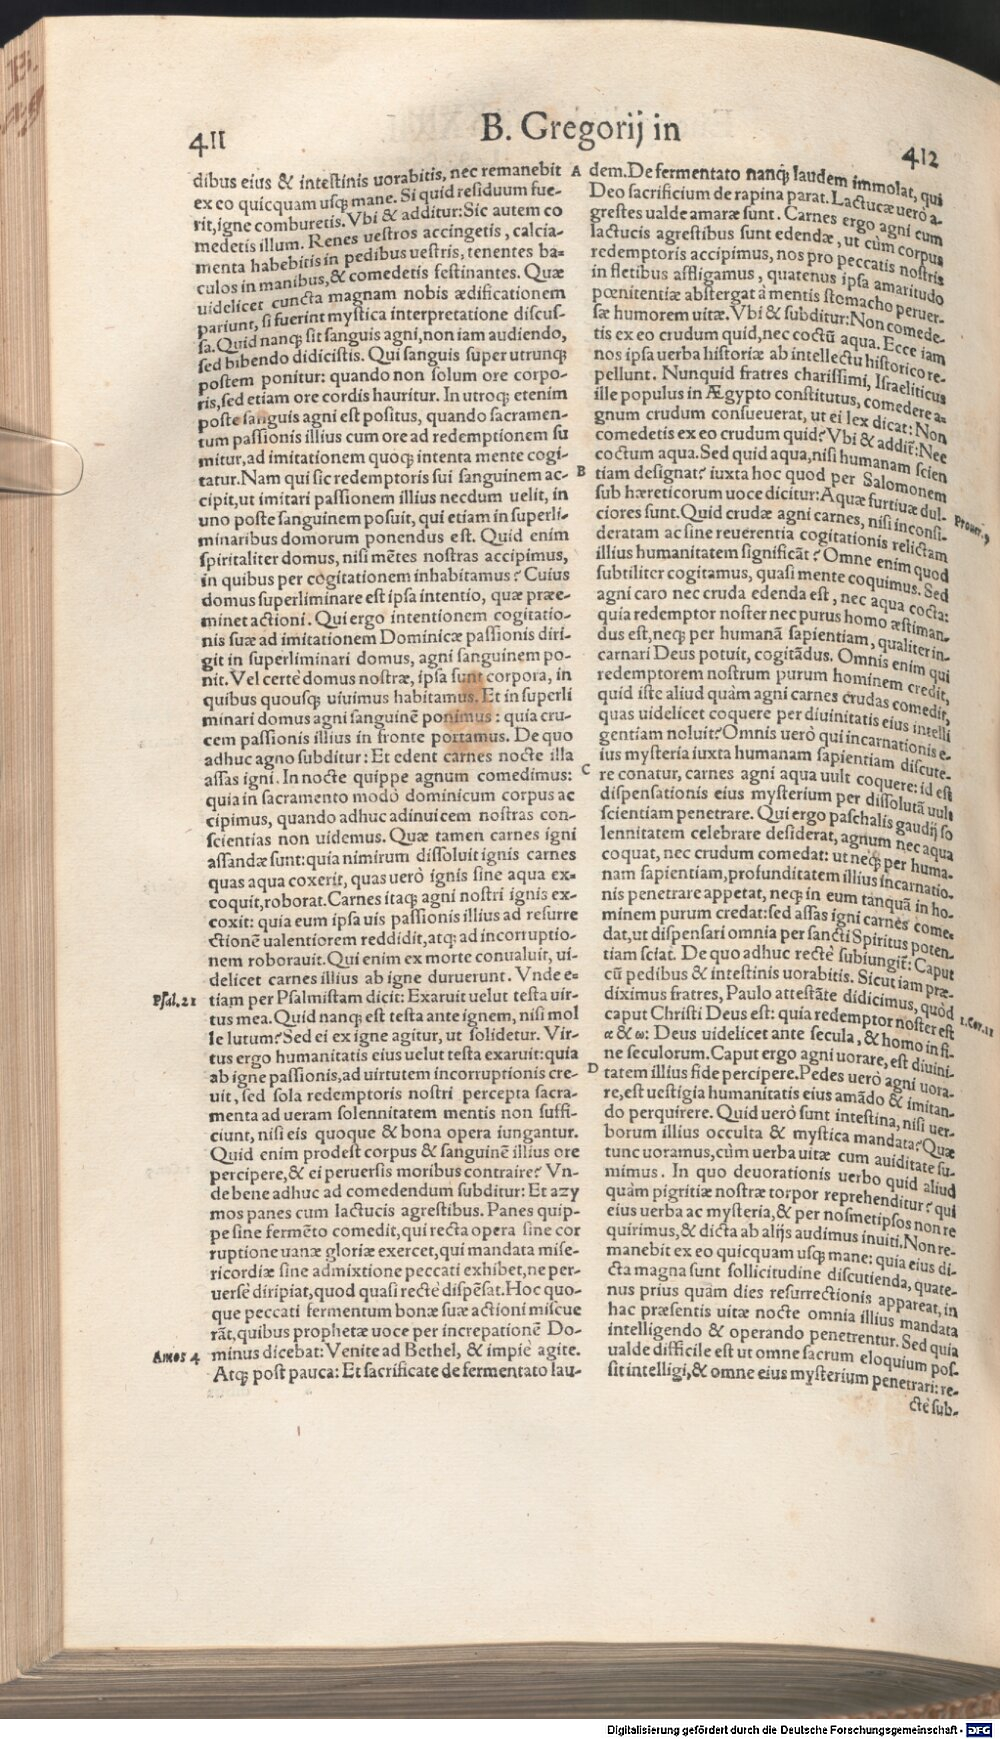 411
B. Gregorij in
412
dibus eius & intestinis uorabitis, nec remanebit
ex eo quicquam usq́; mane. Si quid residuum fue-
rit, igne comburetis. Vbi & additur: Sic autem co
medetis illum. Renes uestros accingetis, calcia-
menta habebitis in pedibus uestris, tenentes ba=
culos in manibus, & comedetis festinantes. Quæ
uidelicet cuncta magnam nobis ædificationem
pariunt, si fuerint mystica interpretatione discus-
sa. Quid nanq; sit sanguis agni, non iam audiendo,
sed bibendo didicistis. Qui sanguis super utrunq;
postem ponitur: quando non solum ore corpo-
ris, sed etiam ore cordis hauritur. In utroq; etenim
poste sanguis agni est positus, quando sacramen-
tum passionis illius cum ore ad redemptionem su
mitur, ad imitationem quoq; intenta mente cogi-
tatur. Nam qui sic redemptoris sui sanguinem ac-
cipit, ut imitari passionem illius necdum uelit, in
uno poste sanguinem posuit, qui etiam in superli-
minaribus domorum ponendus est. Quid enim
spiritaliter domus, nisi mētes nostras accipimus,
in quibus per cogitationem inhabitamus? Cuius
domus superliminare est ipsa intentio, quæ præe-
minet actioni. Qui ergo intentionem cogitatio-
nis suæ ad imitationem Dominicæ passionis diri-
git in superliminari domus, agni sanguinem po-
nit. Vel certè domus nostræ, ipsa sunt corpora, in
quibus quousq; uiuimus habitamus. Et in superli
minari domus agni sanguinē ponimus: quia cru-
cem passionis illius in fronte portamus. De quo
adhuc agno subditur: Et edent carnes nocte illa
assas igni. In nocte quippe agnum comedimus:
quia in sacramento modò dominicum corpus ac
cipimus, quando adhuc adinuicem nostras con-
scientias non uidemus. Quæ tamen carnes igni
assandæ sunt: quia nimirum dissoluit ignis carnes
quas aqua coxerit, quas uerò ignis sine aqua ex=
coquit, roborat. Carnes itaq; agni nostri ignis ex-
coxit: quia eum ipsa uis passionis illius ad resurre
ctionē ualentiorem reddidit, atq; ad incorruptio-
nem roborauit. Qui enim ex morte conualuit, ui-
delicet carnes illius ab igne duruerunt. Vnde e-
Psal. 21
tiam per Psalmistam dicit: Exaruit uelut testa uir-
tus mea. Quid nanq; est testa ante ignem, nisi mol
le lutum? Sed ei ex igne agitur, ut solidetur. Vir-
tus ergo humanitatis eius uelut testa exaruit: quia
ab igne passionis, ad uirtutem incorruptionis cre-
uit, sed sola redemptoris nostri percepta sacra-
menta ad ueram solennitatem mentis non suffi-
ciunt, nisi eis quoque & bona opera iungantur.
Quid enim prodest corpus & sanguinē illius ore
percipere, & ei peruersis moribus contraire? Vn-
de bene adhuc ad comedendum subditur: Et azy
mos panes cum lactucis agrestibus. Panes quip-
pe sine fermēto comedit, qui recta opera sine cor
ruptione uanæ gloriæ exercet, qui mandata mise-
ricordiæ sine admixtione peccati exhibet, ne per-
uersè diripiat, quod quasi rectè dispēsat. Hoc quo-
que peccati fermentum bonæ suæ actioni miscue
rāt, quibus prophetæ uoce per increpationē Do-
Amos 4
minus dicebat: Venite ad Bethel, & impiè agite.
Atq; post pauca: Et sacrificate de fermentato lau-
A
dem. De fermentato nanq; laudem immolat, qui
Deo sacrificium de rapina parat. Lactucæ uerò a-
grestes ualde amaræ sunt. Carnes ergo agni cum
lactucis agrestibus sunt edendæ, ut cùm corpus
redemptoris accipimus, nos pro peccatis nostris
in fletibus affligamus, quatenus ipsa amaritudo
pœnitentiæ abstergat à mentis stomacho peruer-
sæ humorem uitæ. Vbi & subditur: Non comede-
tis ex eo crudum quid, nec coctū aqua. Ecce iam
nos ipsa uerba historiæ ab intellectu historico re-
pellunt. Nunquid fratres charissimi, Israeliticus
ille populus in Ægypto constitutus, comedere a-
gnum crudum consueuerat, ut ei lex dicat: Non
comedetis ex eo crudum quid? Vbi & addit̃: Nec
coctum aqua. Sed quid aqua, nisi humanam scien
B
tiam designat? iuxta hoc quod per Salomonem
sub hæreticorum uoce dicitur: Aquæ furtiuæ dul-
Prouer. 9
ciores sunt. Quid crudæ agni carnes, nisi inconsi-
deratam ac sine reuerentia cogitationis relictam
illius humanitatem significāt? Omne enim quod
subtiliter cogitamus, quasi mente coquimus. Sed
agni caro nec cruda edenda est, nec aqua cocta:
quia redemptor noster nec purus homo æstiman-
dus est, neq; per humanā sapientiam, qualiter in-
carnari Deus potuit, cogitādus. Omnis enim qui
redemptorem nostrum purum hominem credit,
quid iste aliud quàm agni carnes crudas comedit,
quas uidelicet coquere per diuinitatis eius intelli
gentiam noluit? Omnis uerò qui incarnationis e-
ius mysteria iuxta humanam sapientiam discute-
C
re conatur, carnes agni aqua uult coquere: id est
dispensationis eius mysterium per dissolutā uult
scientiam penetrare. Qui ergo paschalis gaudij so
lennitatem celebrare desiderat, agnum nec aqua
coquat, nec crudum comedat: ut neq; per huma-
nam sapientiam, profunditatem illius incarnatio-
nis penetrare appetat, neq; in eum tanquā in ho-
minem purum credat: sed assas igni carnes come=
dat, ut dispensari omnia per sancti Spiritus poten-
tiam sciat. De quo adhuc rectè subiungit̃: Caput
cū pedibus & intestinis uorabitis. Sicut iam præ-
diximus fratres, Paulo attestāte didicimus, quòd
1. Cor. 11
caput Christi Deus est: quia redemptor noster est
α & ω: Deus uidelicet ante secula, & homo in fi-
ne seculorum. Caput ergo agni uorare, est diuini-
D
tatem illius fide percipere. Pedes uerò agni uora-
re, est uestigia humanitatis eius amādo & imitan-
do perquirere. Quid uerò sunt intestina, nisi uer-
borum illius occulta & mystica mandata? Quæ
tunc uoramus, cùm uerba uitæ cum auiditate su-
mimus. In quo deuorationis uerbo quid aliud
quàm pigritiæ nostræ torpor reprehenditur? qui
eius uerba ac mysteria, & per nosmetipsos non re
quirimus, & dicta ab alijs audimus inuiti. Non re-
manebit ex eo quicquam usq; mane: quia eius di-
cta magna sunt sollicitudine discutienda, quate-
nus prius quàm dies resurrectionis appareat, in
hac præsentis uitæ nocte omnia illius mandata
intelligendo & operando penetrentur. Sed quia
ualde difficile est ut omne sacrum eloquium pos-
sit intelligi, & omne eius mysterium penetrari: re-
ctè sub-
Digitalisierung gefördert durch die Deutsche Forschungsgemeinschaft - DFG